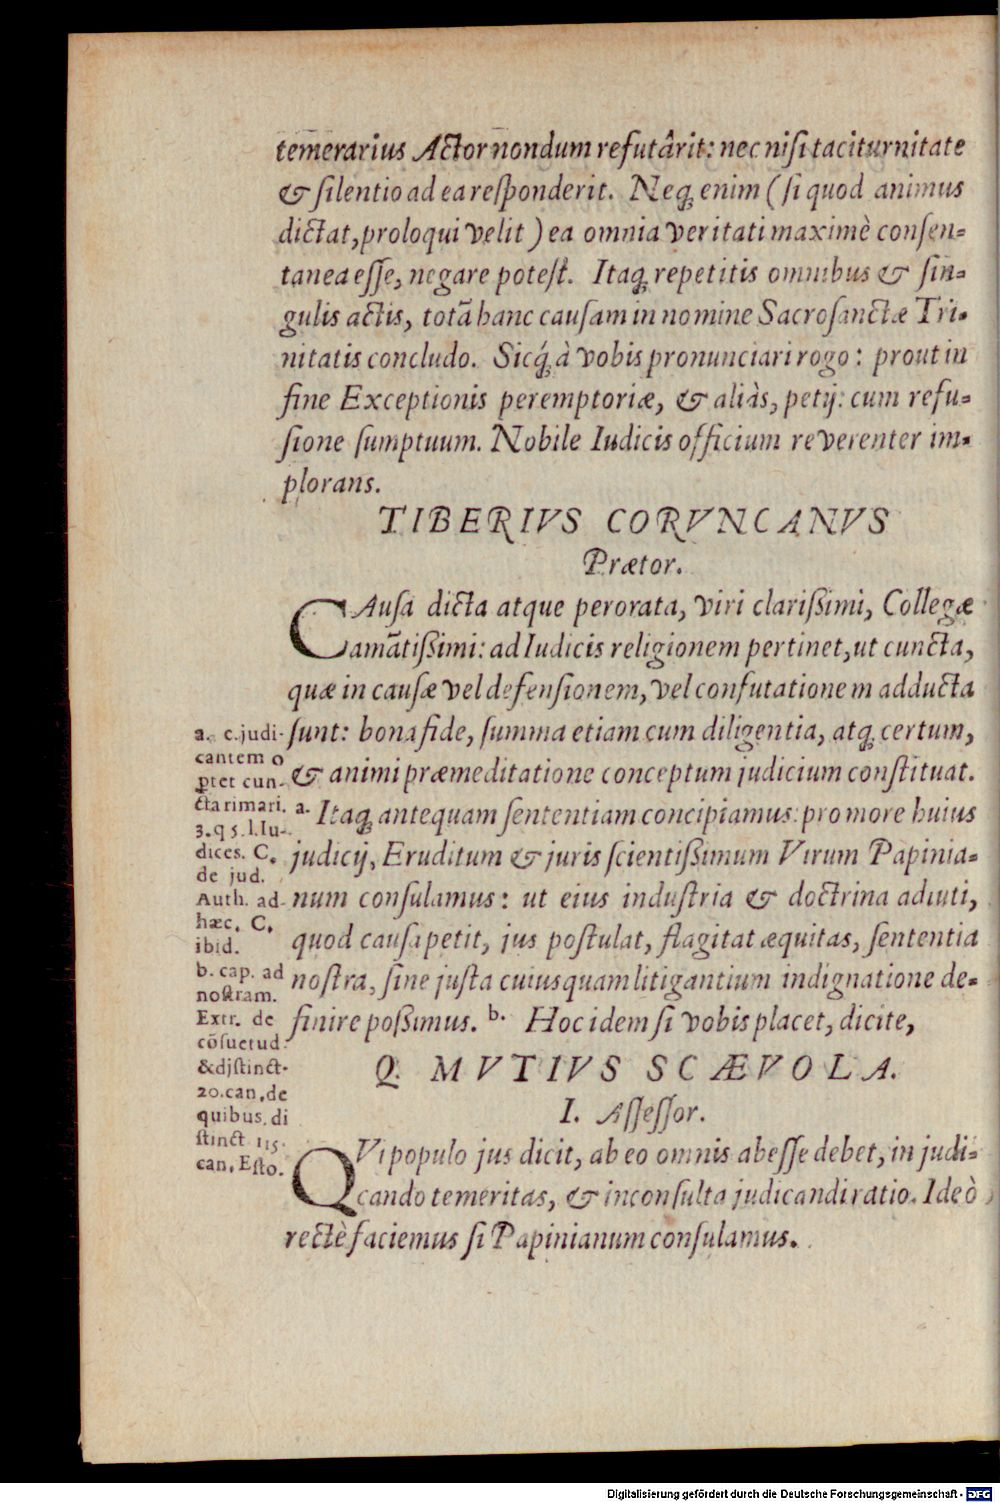 temerarius Actor nondum refutârit: nec nisi taciturnitate
& silentio ad ea responderit. Neq; enim (si quod animus
dictat, proloqui velit) ea omnia veritati maximè consen-
tanea esse, negare potest. Itaq; repetitis omnibus & sin-
gulis actis, totā hanc causam in nomine Sacrosanctæ Tri-
nitatis concludo. Sicq́; à vobis pronunciari rogo: prout in
fine Exceptionis peremptoriæ, & aliàs, petij: cum refu-
sione sumptuum. Nobile Iudicis officium reverenter im-
plorans.
TIBERIVS CORVNCANVS
Prætor.
CAusa dicta atque perorata, viri clarissimi, Collegæ
amātissimi: ad Iudicis religionem pertinet, ut cuncta,
quæ in causæ vel defensionem, vel confutationem adducta
sunt: bona fide, summa etiam cum diligentia, atq; certum,
& animi præmeditatione conceptum judicium constituat.
a. Itaq; antequam sententiam concipiamus: pro more huius
judicij, Eruditum & juris scientissimum Virum Papinia-
num consulamus: ut eius industria & doctrina adiuti,
quod causa petit, jus postulat, flagitat æquitas, sententia
nostra, sine justa cuiusquam litigantium indignatione de-
finire possimus. b. Hoc idem si vobis placet, dicite,
a. c. judi-
cantem o
ꝓtet cun-
cta rimari.
3. q 5. l. Iu-
dices. C.
de jud.
Auth. ad-
hæc. C.
ibid.
b. cap. ad
nostram.
Extr. de
cōsuetud.
& djstinct.
20. can. de
quibus. di
stinct 115.
can. Esto.
Q. MVTIVS SCÆVOLA.
I. Assessor.
QVi populo jus dicit, ab eo omnis abesse debet, in judi-
cando temeritas, & inconsulta judicandi ratio. Ideò
rectè faciemus si Papinianum consulamus.
Digitalisierung gefördert durch die Deutsche Forschungsgemeinschaft - DFG